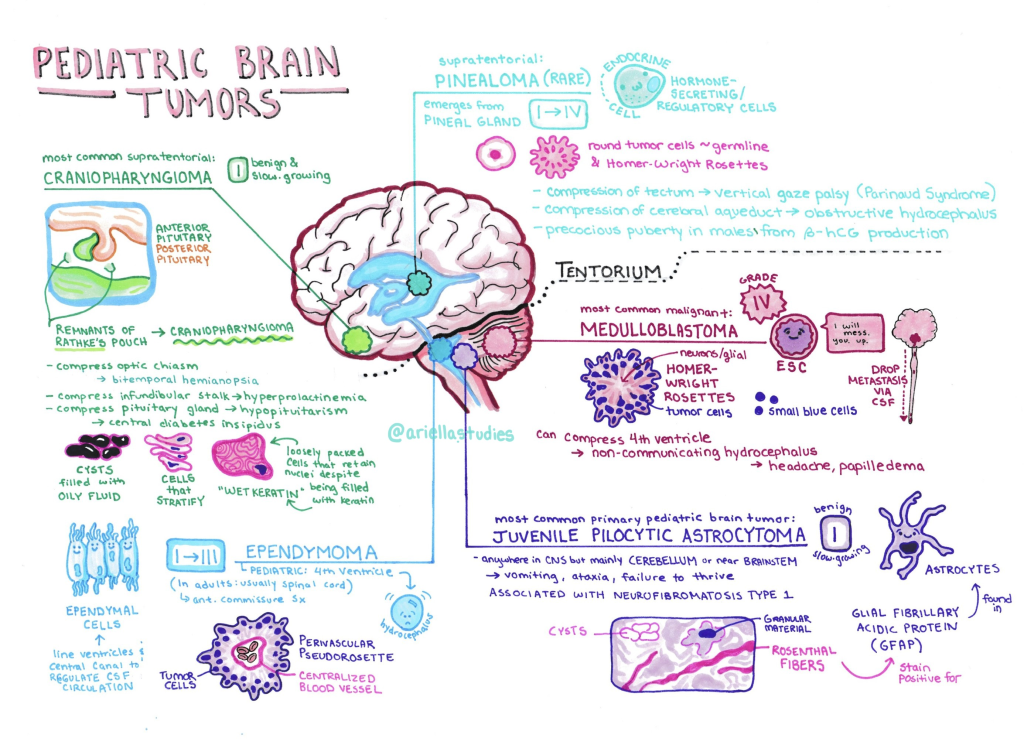 PEDIATRIC BRAIN
TUMORS
supratentorial:
PINEALOMA (RARE)
emerges from
PINEAL GLAND
I → IV
ENDOCRINE
CELL
HORMONE-
SECRETING/
REGULATORY CELLS
round tumor cells ~ germline
& Homer-Wright Rosettes
- compression of tectum → vertical gaze palsy (Parinaud Syndrome)
- compression of cerebral aqueduct → obstructive hydrocephalus
- precocious puberty in males from β-hCG production
most common supratentorial:
CRANIOPHARYNGIOMA
I
benign &
slow-growing
ANTERIOR
PITUITARY
POSTERIOR
PITUITARY
REMNANTS OF
RATHKE'S POUCH
→ CRANIOPHARYNGIOMA
- compress optic chiasm
→ bitemporal hemianopsia
- compress infundibular stalk → hyperprolactinemia
- compress pituitary gland → hypopituitarism
→ central diabetes insipidus
CYSTS
filled with
OILY FLUID
CELLS
that
STRATIFY
"WET KERATIN"
loosely packed
cells that retain
nuclei despite
being filled
with keratin
TENTORIUM
@ariellastudies
most common malignant:
MEDULLOBLASTOMA
GRADE
IV
ESC
I will
mess.
you. up.
DROP
METASTASIS
VIA
CSF
neurons/glial
HOMER-
WRIGHT
ROSETTES
tumor cells
small blue cells
can compress 4th ventricle
→ non-communicating hydrocephalus
→ headache, papilledema
most common primary pediatric brain tumor:
JUVENILE PILOCYTIC ASTROCYTOMA
benign
I
slow-growing
- anywhere in CNS but mainly CEREBELLUM or near BRAINSTEM
→ vomiting, ataxia, failure to thrive
ASSOCIATED WITH NEUROFIBROMATOSIS TYPE 1
ASTROCYTES
found
in
GLIAL FIBRILLARY
ACIDIC PROTEIN
(GFAP)
stain
positive for
CYSTS
GRANULAR
MATERIAL
ROSENTHAL
FIBERS
I → III
EPENDYMOMA
PEDIATRIC: 4th ventricle
(In adults: usually spinal cord)
↳ ant. commissure Sx
hydrocephalus
EPENDYMAL
CELLS
line ventricles &
central canal to
REGULATE CSF
CIRCULATION
PERIVASCULAR
PSEUDOROSETTE
TUMOR
CELLS
CENTRALIZED
BLOOD VESSEL